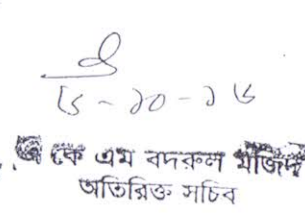 ১৫-১০-১৬
কে এম বদরুল মজিদ
অতিরিক্ত সচিব